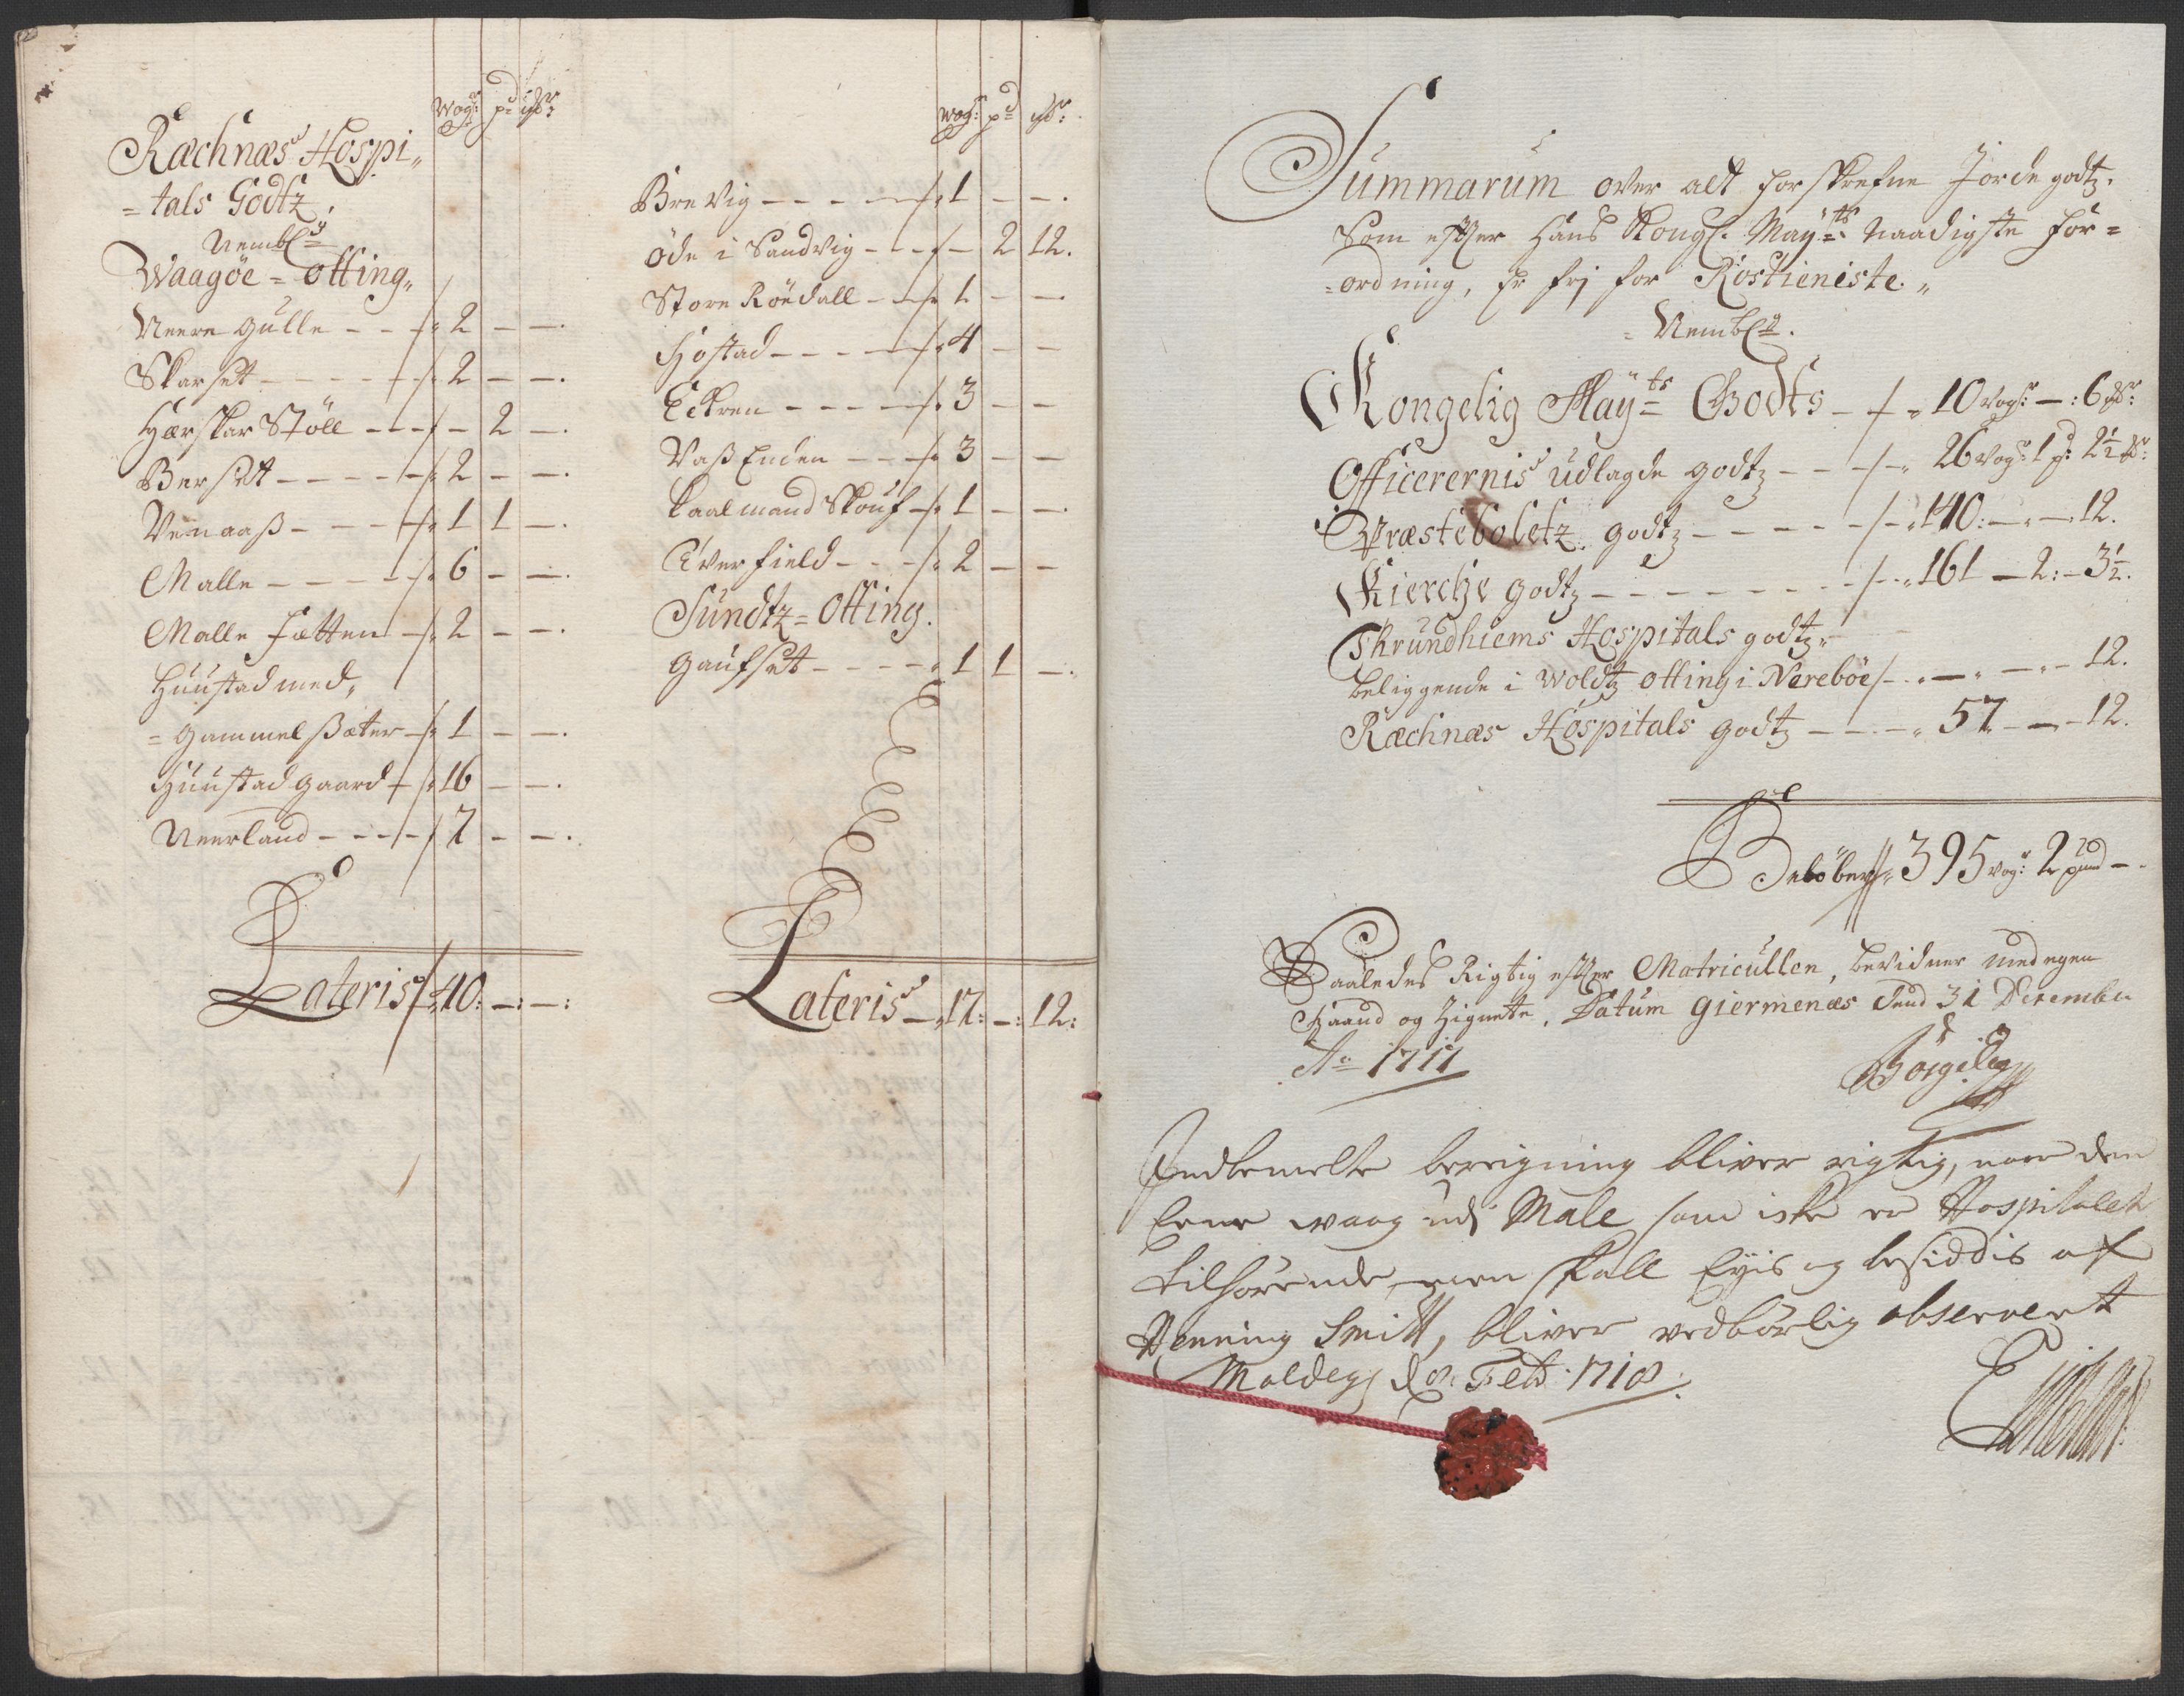 Wog:r pd mk:r
Ræchnæs Hospi„
=tals Godtz,
Nembl:g
Waagöe = otting„
Neere Gulle - - - 2 - -.
Skarset - - - - 2 - -.
Hærskar Stöll - - - - 2 -.
Berset - - - - 2 - -.
Venaaß - - - - 1 1 -.
Malle - - - - 6 - -.
Malle Fætten - 2 - -.
Huustad med„
= Gammel Sæter - 1 - -.
Huustad gaard - 16 - -.
Neerland - - - - 7 - -.
Lateris 40: -: -:
wog:r pd mk:r
Brevig - - - - 1 - -.
Öde i Sandvig - - - - 2 12.
Store Röedall - - 1 - -
Hostad - - - - 4 - -
Eckren - - - - 3 - -
Vaß Enden - - - 3 - -
Kaalmand Skouf - 1 - -.
Tverfield - - - 2 - -
Sundtz = Otting.
Gaufset - - - - 1 1 -.
Lateris - 17: -: 12:
Summarum over alt forskrefne Jorde godtz.
Som efter Hans Kongl. May:ts Naadigste For=
=ordning, er frj for Rostieniste. „
= Nembl:g.
Kongelig May:ts Godts - - 10 wog:r - : 6 mk:r
Officerernis udlagde godtz - - - 26 wog:r 1 p: 2½ mk:r
Præsteboletz godtz - - - - - 140: - - 12.
Kierche godtz - - - - - - - 161 - 2: - 3½.
Thrundhiems Hospitals godtz„
beliggende i Woldtz otting i Nereböe - - - - 12.
Ræchnæs Hospitals godtz - - - 57 - - 12.
Beløber 395 wog:r 2 pund -
Saaledes Rigtig efter Matricullen, bevidner med egen
Haand og Zignette, Datum Giermenæs dend 31 Decembr
Ao 1717
Indbemelte beregning bliver rigtig, naar den
Eene waag udj Male som iche er Hospitalet
tilhørende, men skall Eyis og besiddis af
Henning Smitt, bliver vedbørlig observert
Molde d 8. Feb: 1718.